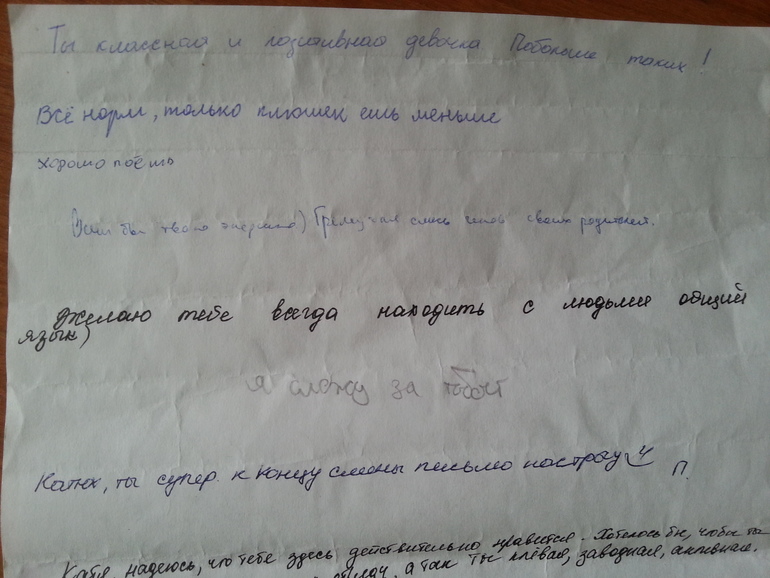 Ты классная и позитивная девочка Побольше таких!
Всё норм, только плюшек ешь меньше
хорошо поёшь
бы твою энергию) Гремучая смесь генов своих родителей.
Желаю тебе всегда находить с людьми общий
язык)
я слежу за тобой
Катюх, ты супер. к концу смены письмо настрочу П.
Катя, надеюсь, что тебе здесь действительно нравится. Хотелось бы, чтобы ты
а так ты клёвая, заводная, активная.